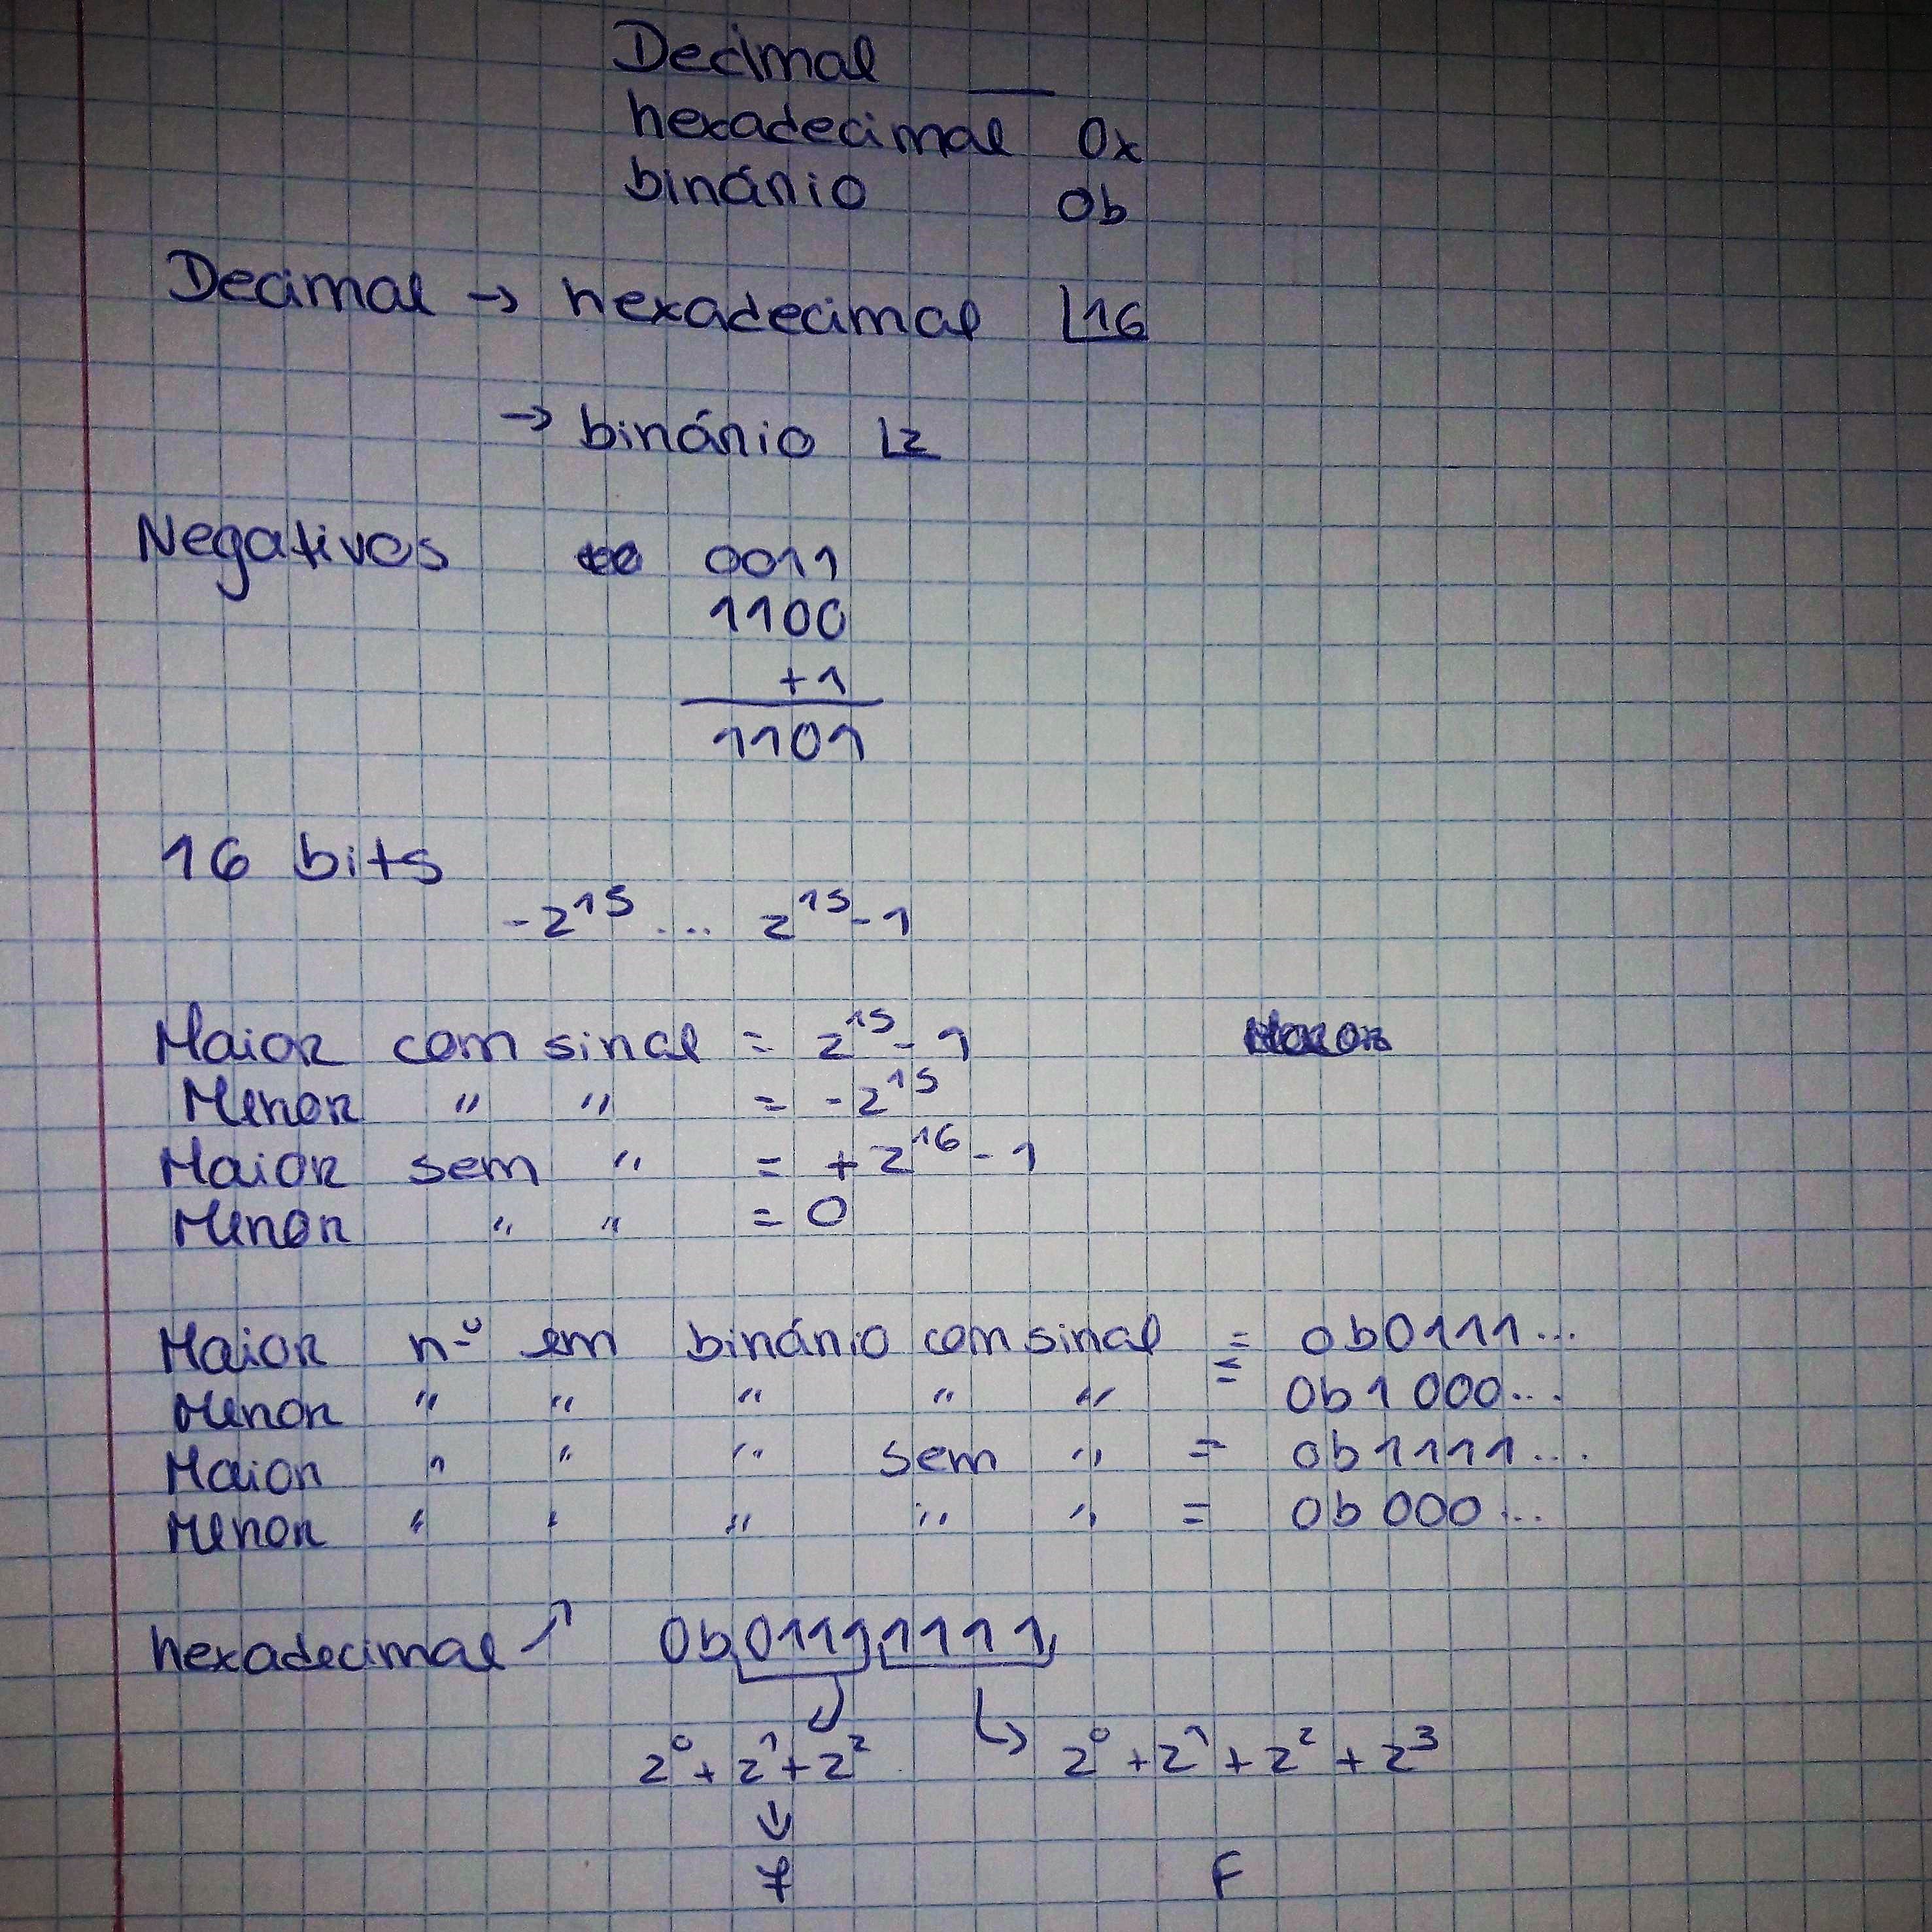 Decimal __
hexadecimal 0x
binário 0b
Decimal → hexadecimal |16
→ binário |2
Negativos 0011
1100
+1
1101
16 bits
-2^15 ... 2^15-1
Maior com sinal = 2^15-1
Menor " " = -2^15
Maior sem " = +2^16-1
Menor " " = 0
Maior nº em binário com sinal = 0b0111...
Menor " " " " " = 0b1000...
Maior " " " sem " = 0b1111....
Menor " " " " " = 0b000...
hexadecimal ↗ 0b01111111
2^0+2^1+2^2 2^0+2^1+2^2+2^3
↓
7 F